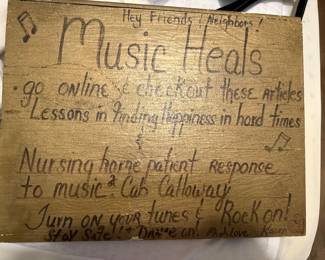 Hey Friends & Neighbors!
Music Heals
go online & checkout these articles
Lessons in finding Happiness in hard times
&
Nursing home patient response
to music & Cab Calloway
Turn on your tunes & Rock on!
Stay Safe!! Dance on!